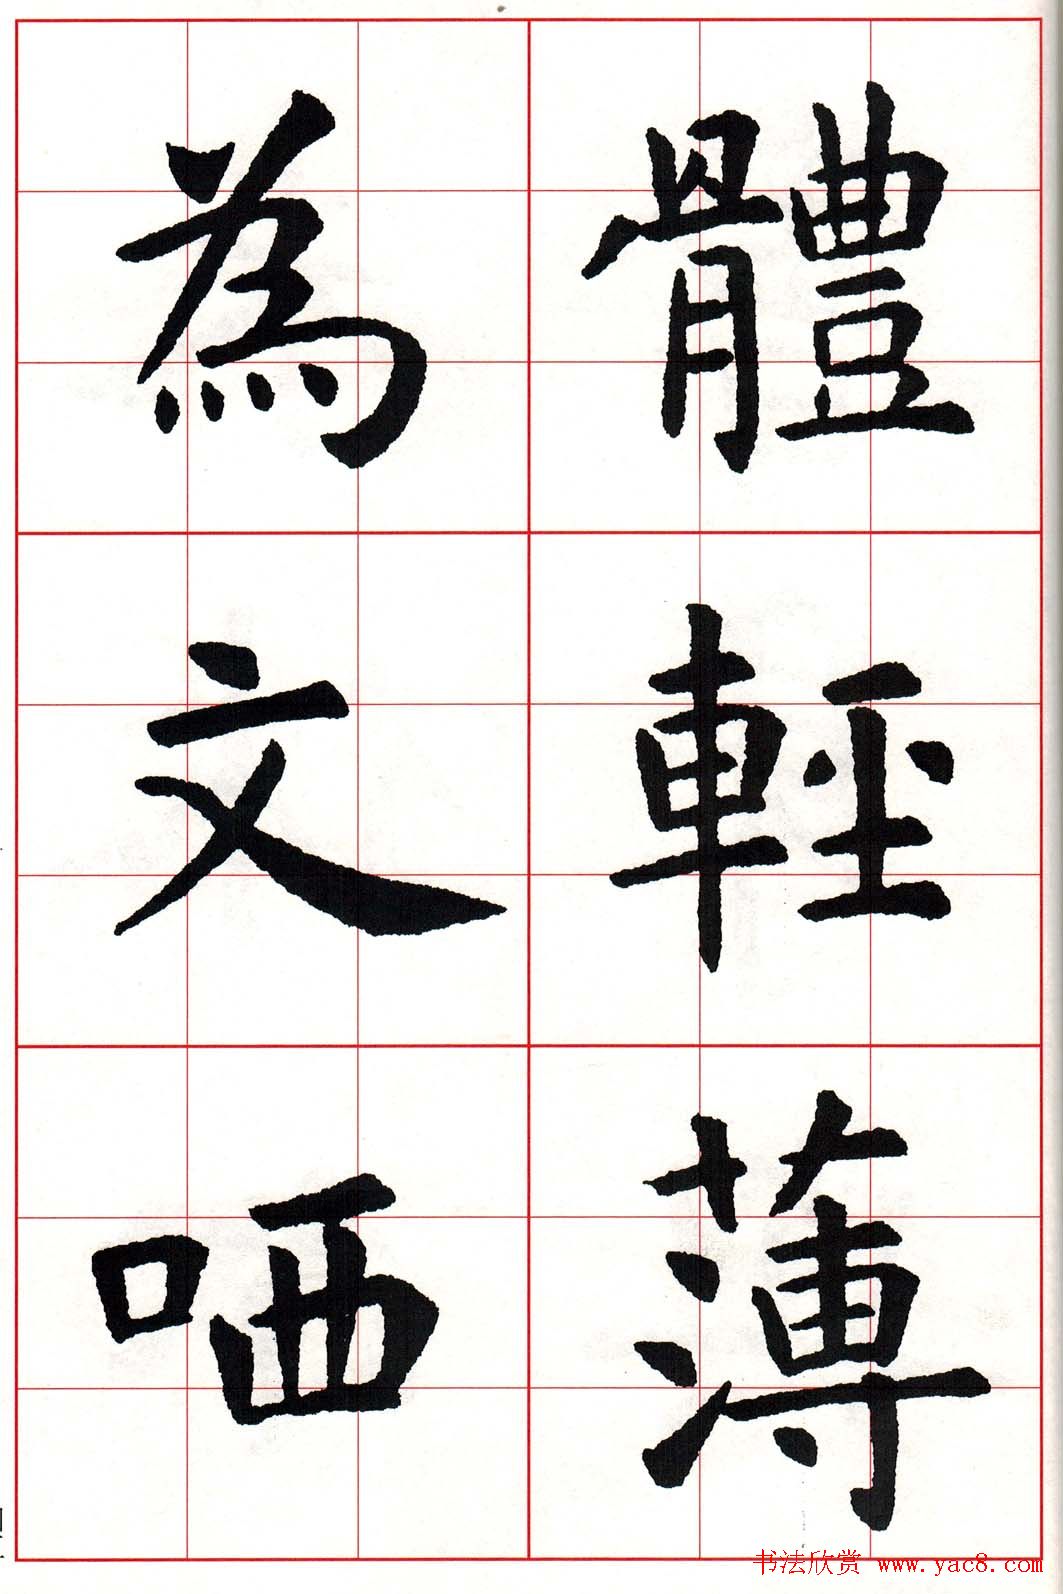 體輕薄
為文哂
书法欣赏 www.yac8.com